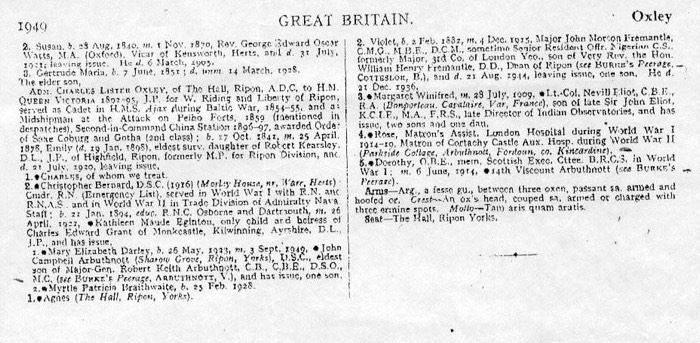 1949
GREAT BRITAIN.
Oxley
2. Susan, b. 28 Aug. 1840, m. 1 Nov. 1870, Rev. George Edward Oscar
Watts, M.A. (Oxford), Vicar of Kensworth, Herts, and d. 31 July,
leaving issue. He d. 6 March, 1905.
3. Gertrude Maria, b. 7 June, 1851; d. unm. 14 March, 1928.
The elder son,
ADM. CHARLES LISTER OXLEY, of The Hall, Ripon, A.D.C. to H.M.
QUEEN VICTORIA 1892-95, J.P. for W. Riding and Liberty of Ripon,
served as Cadet in H.M.S. Ajax during Baltic War, 1854-55, and as
Midshipman at the Attack on Peiho Forts, 1859 (mentioned in
despatches), Second-in-Command China Station 1896-97, awarded Order
of Saxe Coburg and Gotha (2nd class); b. 27 Oct. 1841, m. 25 April,
1878, Emily (d. 19 Jan. 1898), eldest surv. daughter of Robert Kearsley,
D.L., J.P., of Highfield, Ripon, formerly M.P. for Ripon Division, and
d. 21 July, 1920, leaving issue,
1.●CHARLES, of whom we treat.
2.●Christopher Bernard, D.S.C. (1916) (Morley House, nr. Ware, Herts)
Cmdr. R.N. (Emergency List), served in World War I with R.N. and
R.N.A.S. and in World War II in Trade Division of Admiralty Naval
Staff; b. 21 Jan. 1894, educ. R.N.C. Osborne and Dartmouth, m. 26
April, 1922, ●Kathleen Naude Eginton, only child and heiress of
Charles Edward Grant of Monckcastle, Kilwinning, Ayrshire, D.L.,
J.P., and has issue,
1.●Mary Elizabeth Darley, b. 26 May, 1923, m. 3 Sept. 1949, ●John
Campbell Arbuthnott (Sharow Grove, Ripon, Yorks), D.S.C., eldest
son of Major-Gen. Robert Keith Arbuthnott, C.B., C.B.E., D.S.O.,
M.C. (see BURKE'S Peerage, ARBUTHNOTT, V.), and has issue, one son.
2.●Myrtle Patricia Braithwaite, b. 25 Feb. 1928.
1.●Agnes (The Hall, Ripon, Yorks).
2. Violet, b. 2 Feb. 1882, m. 4 Dec. 1915, Major John Morton Fremantle,
C.M.G., M.B.E., D.C.M., sometime Senior Resident Offr. Nigerian C.S.,
formerly Major, 3rd Co. of London Yeo., son of Very Rev. the Hon.
William Henry Fremantle, D.D., Dean of Ripon (see BURKE'S Peerage,
COTTESLOE, B.), and d. 21 Aug. 1944, leaving issue, one son. He d.
21 Dec. 1936.
3.●Margaret Winifred, m. 28 July, 1909, ●Lt.-Col. Nevill Eliot, C.B.E.,
R.A. (Bonporteau, Cavalaire, Var, France), son of late Sir John Eliot,
K.C.I.E., M.A., F.R.S., late Director of Indian Observatories, and has
issue, two sons and one dau.
4.●Rose, Matron's Assist. London Hospital during World War I
1914-19, Matron of Cortachy Castle Aux. Hosp. during World War II
(Parkside Cottage, Arbuthnott, Fordoun, co. Kincardine).
5.●Dorothy, O.B.E., mem. Scottish Exec. Cttee. B.R.C.S. in World
War I; m. 6 June, 1914, ●14th Viscount Arbuthnott (see BURKE'S
Peerage).
Arms—Arg., a fesse gu., between three oxen, passant sa. armed and
hoofed or. Crest—An ox's head, couped sa. armed or charged with
three ermine spots. Motto—Tam aris quam aratis.
Seat—The Hall, Ripon Yorks.